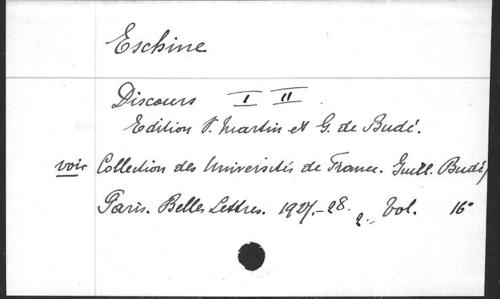 Eschine
Discours I II
Edition V. Martin et G. de Budé.
voir Collection des Universités de France. Guill. Budé,
Paris. Belles Lettres. 1927.-28. 2. Vol. 16°